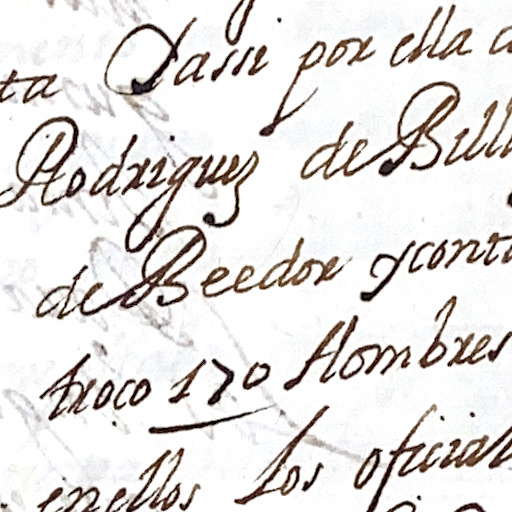 ta Yassi por ella
Rodriguez de Bill
de Beedor y cont
troço 170 Hombres
en ellos Los oficial